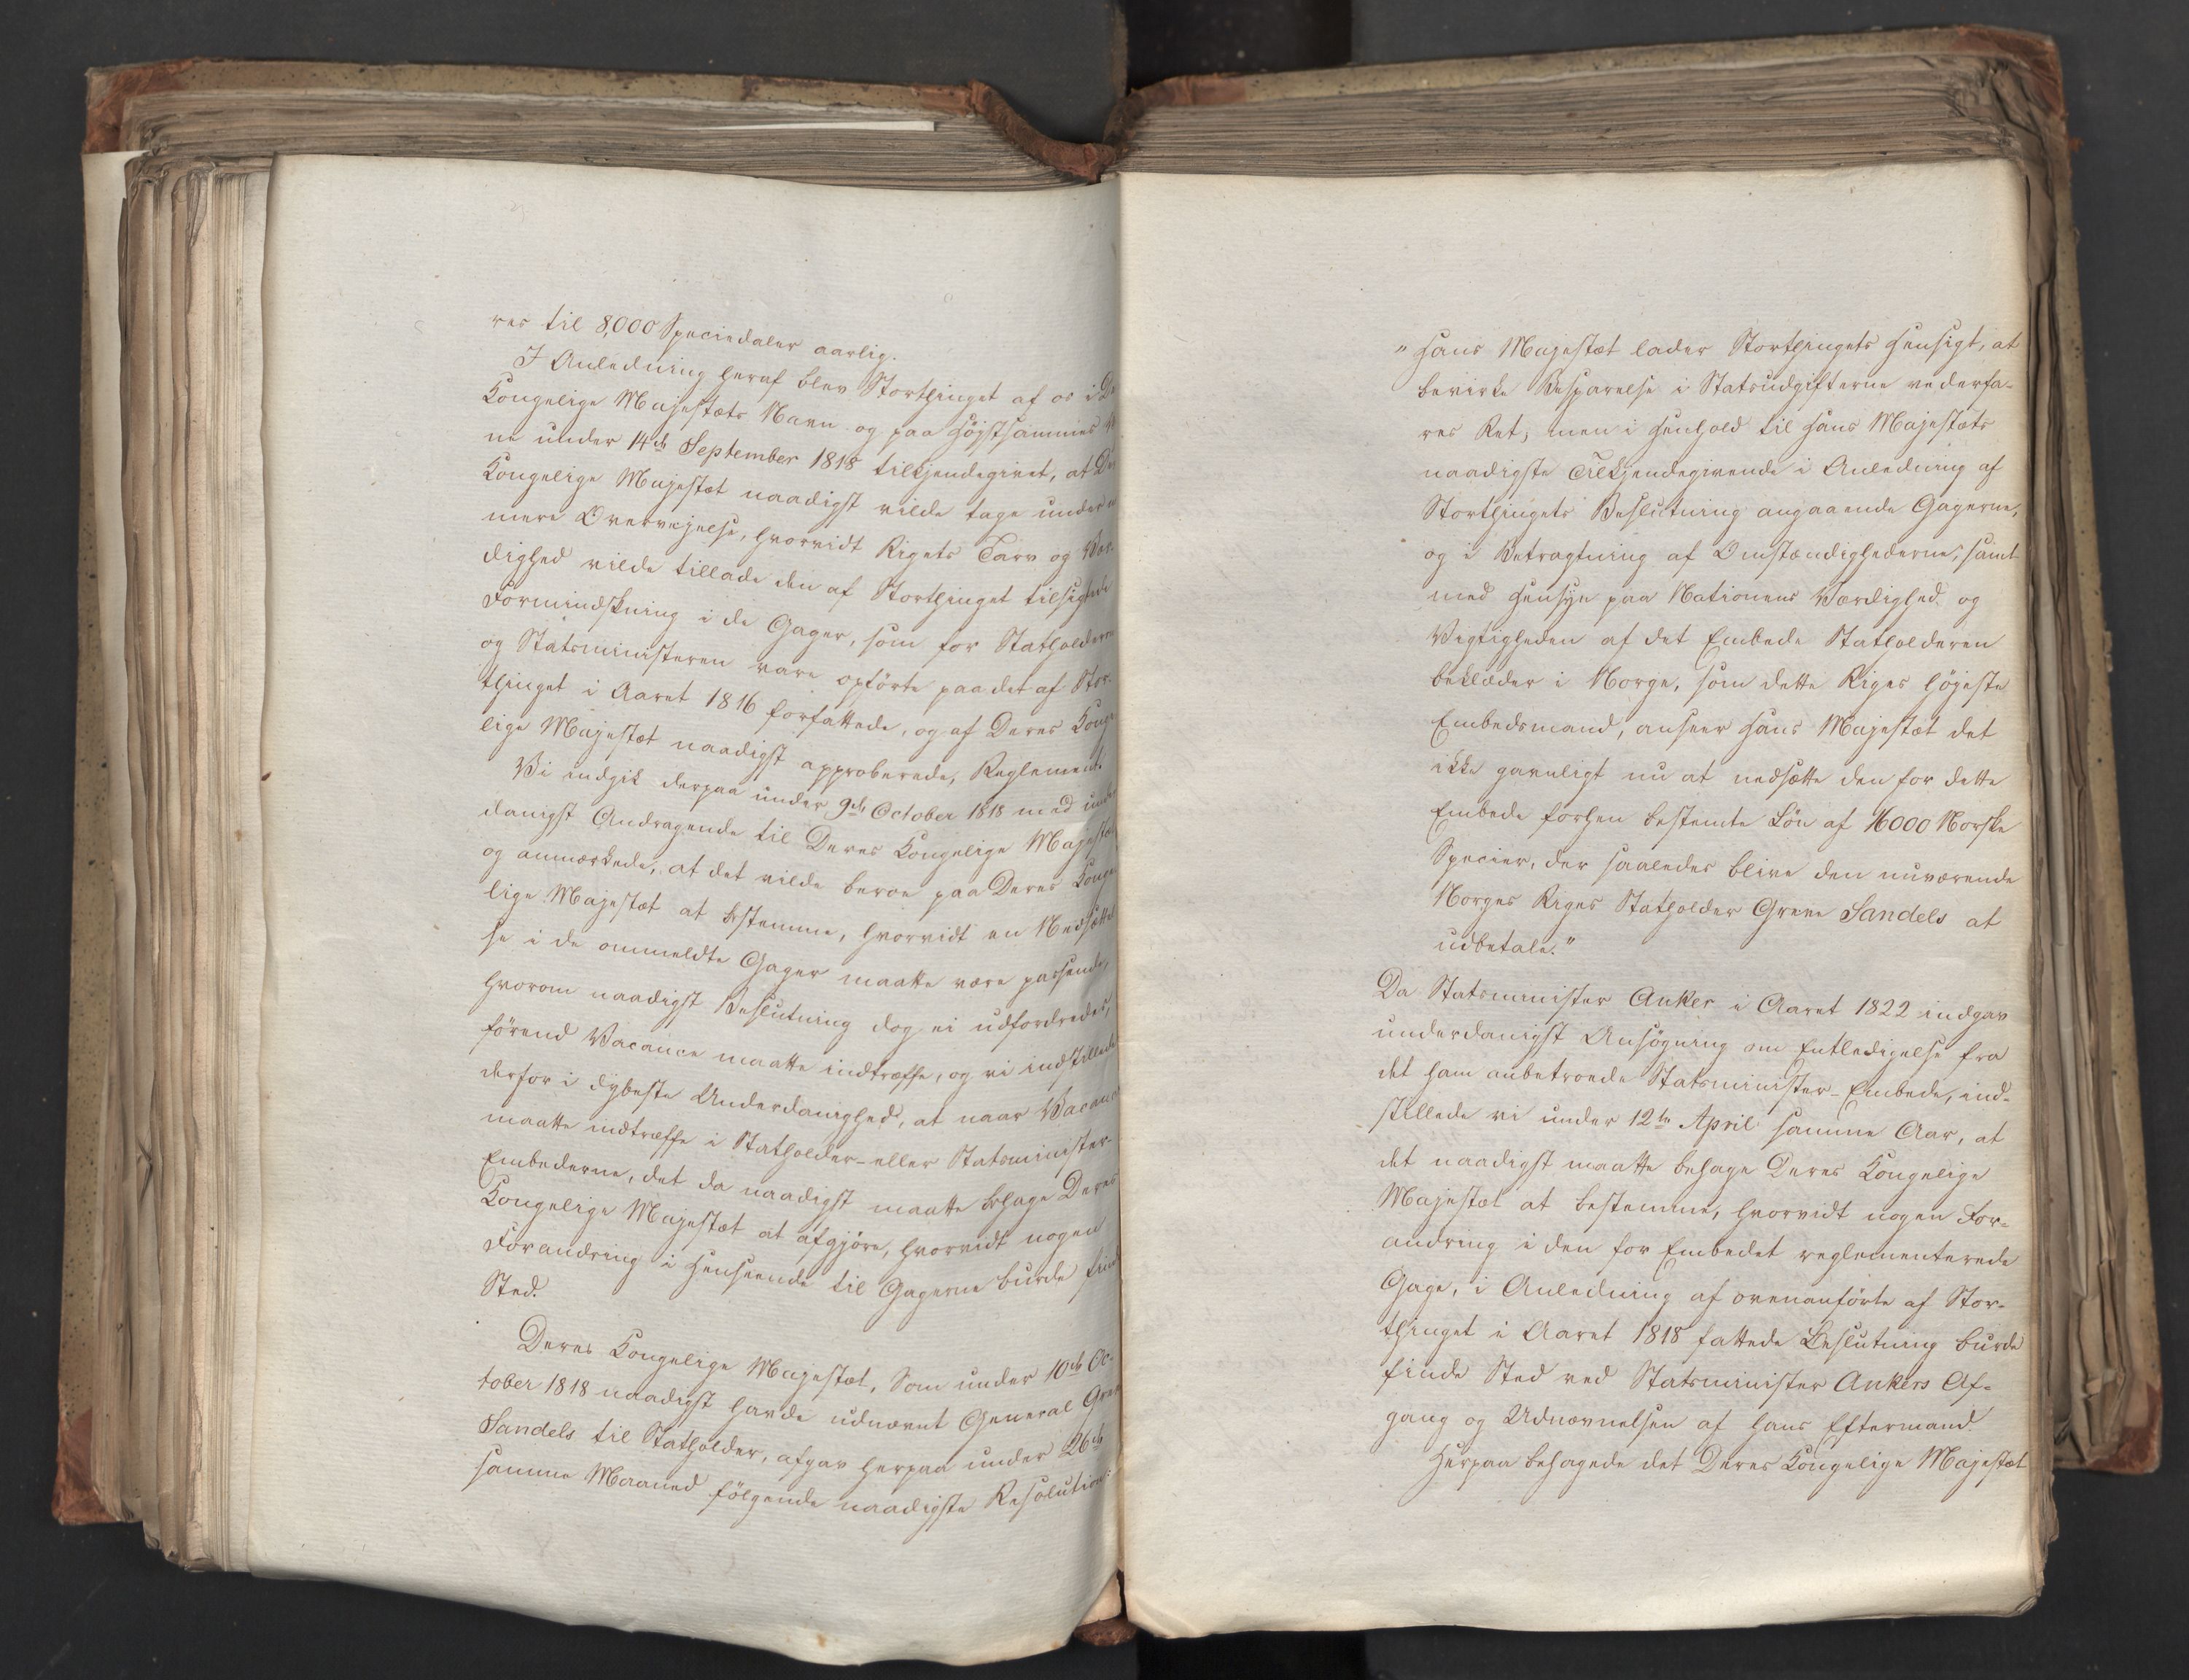 res til 8,000 Speciedaler aarlig.
I Anledning heraf blev Storthinget af os i De
Kongelige Majestæts Navn og paa Højstsammes
ne under 14de September 1818 tilkjendegivet, at De
Kongelige Majestæt naadigst vilde tage under
mere Overvejelse, hvorvidt Rigets Tarv og Vær-
dighed vilde tillade den af Storthinget tilsigtede
Formindskning i de Gager, som for Statholderen
og Statsministeren vare opførte paa det af Stor-
thinget i Aaret 1816 forfattede, og af Deres Konge
lige Majestæt naadigst approberede, Reglement.
Vi indgik derpaa under 9de October 1818 med under
danigst Andragende til Deres Kongelige Majestæt
og anmærkede, at det vilde beroe paa Deres Konge
lige Majestæt at bestemme, hvorvidt en Nedsættel
se i de ommeldte Gager maatte være passende,
hvorom naadigst Beslutning dog ei udfordredes,
førend Vacance maatte indtræffe, og vi indstillede
derfor i dybeste Underdanighed, at naar Vacance
maatte indtræffe i Statholder- eller Statsminister-
Embederne, det da naadigst maatte behage Deres
Kongelige Majestæt at afgjøre, hvorvidt nogen
Forandring i Henseende til Gagerne burde finde
Sted.
Deres Kongelige Majestæt, Som under 10de Oc-
tober 1818 naadigst havde udnævnt General Greve
Sandels til Statholder, afgav herpaa under 26de
samme Maaned følgende naadigste Resolution:
"Hans Majestæt lader Storthingets Hensigt, at
bevirke Besparelse i Statsudgifterne vederfa-
res Ret; men i Henhold til Hans Majestæts
naadigste Tilkjendegivende i Anledning af
Storthingets Beslutning angaaende Gagerne,
og i Betragtning af Omstændighederne, samt
med Hensyn paa Nationens Værdighed og
Vigtigheden af det Embede Statholderen
beklæder i Norge, som dette Riges højeste
Embedsmand, anseer Hans Majestæt det
ikke gavnligt nu at nedsætte den for dette
Embede forhen bestemte Løn af 16000 Norske
Specier, der saaledes blive den nuværende
Norges Riges Statholder Greve Sandels at
udbetale."
Da Statsminister Anker i Aaret 1822 indgav
underdanigst Ansøgning om Entledigelse fra
det ham anbetroede Statsminister-Embede, ind-
stillede vi under 12te April samme Aar, at
det naadigst maatte behage Deres Kongelige
Majestæt at bestemme, hvorvidt nogen For-
andring i den for Embedet reglementerede
Gage, i Anledning af ovenanførte af Stor-
thinget i Aaret 1818 fattede Beslutning burde
finde Sted ved Statsminister Ankers Af-
gang og Udnævnelsen af hans Eftermand.
Herpaa behagede det Deres Kongelige Majestæt